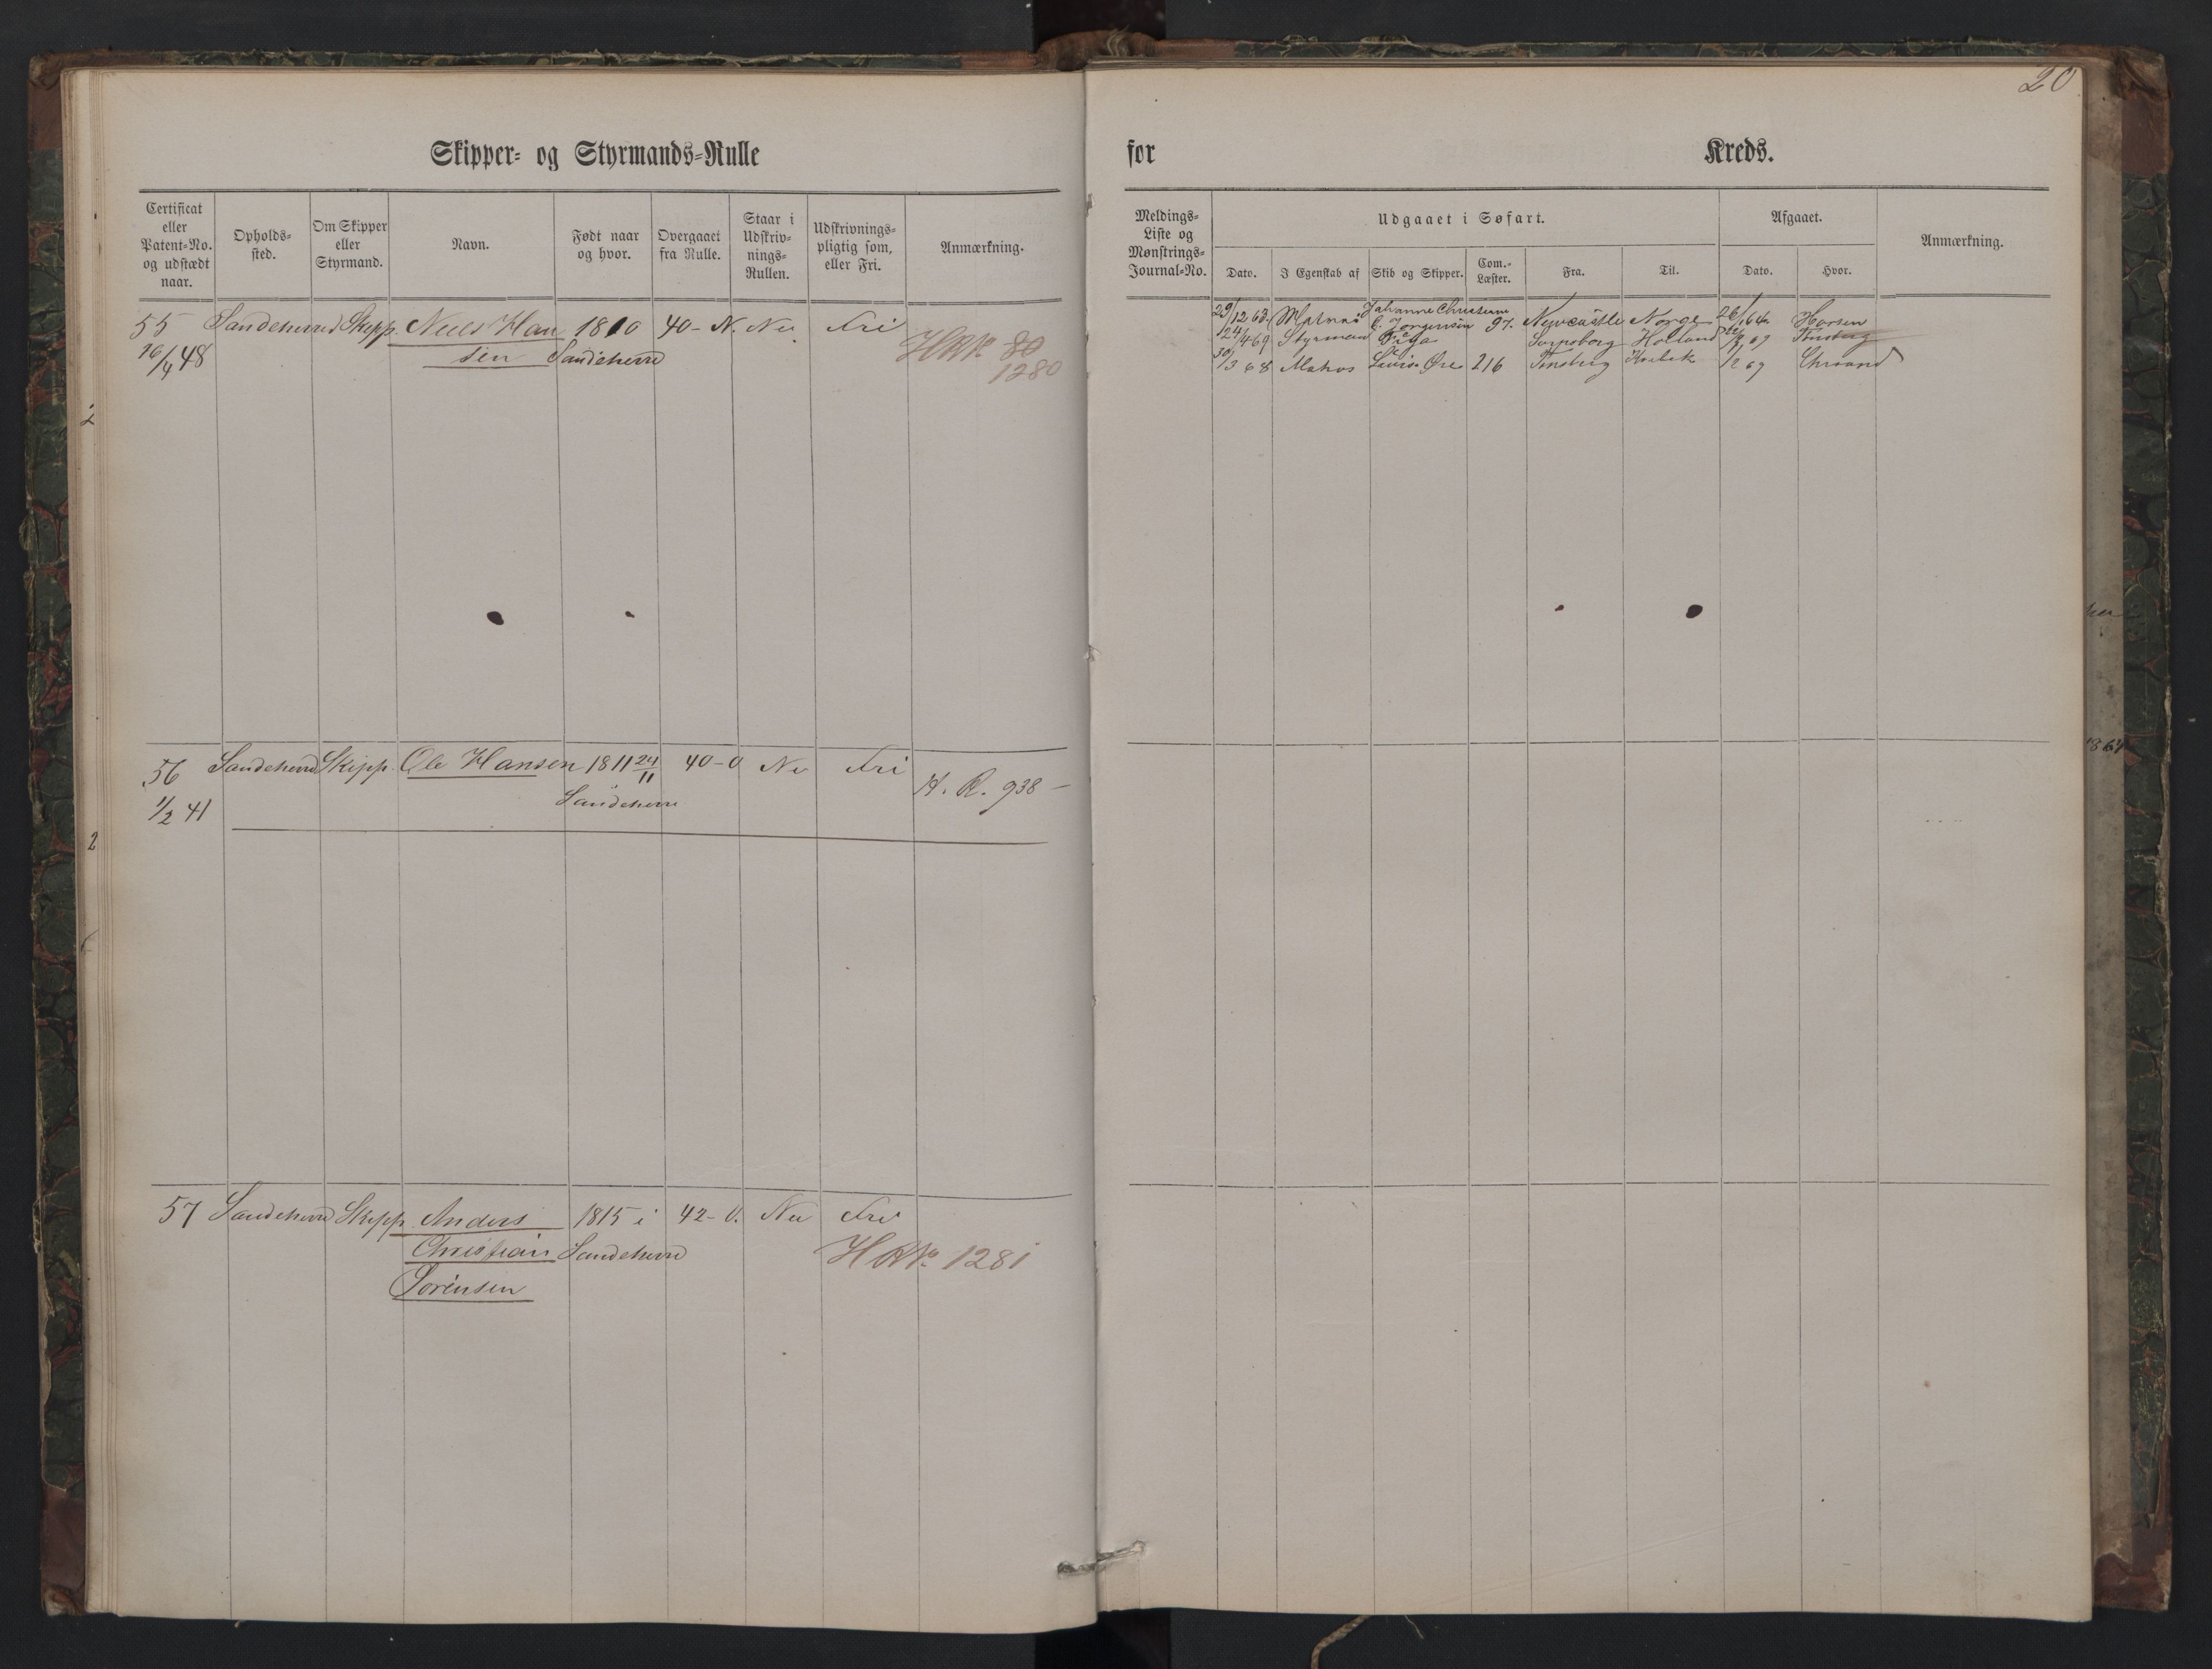 20
Skipper- og Styrmands-Rulle
for Kreds.
Certificat eller Patent-No. og udstædt naar.
Opholds-sted.
Om Skipper eller Styrmand.
Navn.
Født naar og hvor.
Overgaaet fra Rulle.
Staar i Udskriv-nings-Rullen.
Udskrivnings-pligtig som, eller Fri.
Anmærkning.
Meldings-Liste og Mønstrings-Journal-No.
Udgaaet i Søfart.
Dato.
I Egenskab af
Skib og Skipper.
Com.-Læster.
Fra.
Til.
Afgaaet.
Dato.
Hvor.
Anmærkning.
55 Sandeherred Skipp. Niels Han 1810 40- N. Nei Fri
16/4 48 sen Sandeherre HRNo 80
1280
29/12 63 Matros Johanne Christiane C. Jørgensen 97. Newcastle Norge 26/1 64 Horten
24/4 69 Styrman Sarpsborg Holland Tønsberg
30/3 68 Matros 216 Tønsberg 67 Chrsand
56 Sandeherred Skipp. Ole Hansen 1811 24/11 40-0 Nei Fri
1/2 41 Sandeherre H. R. 938 -
57 Sandeherred Skipp. Anders 1815 i 42-0. Nei Fri
Christian Sandeherred HRNo 1281
Sörensen